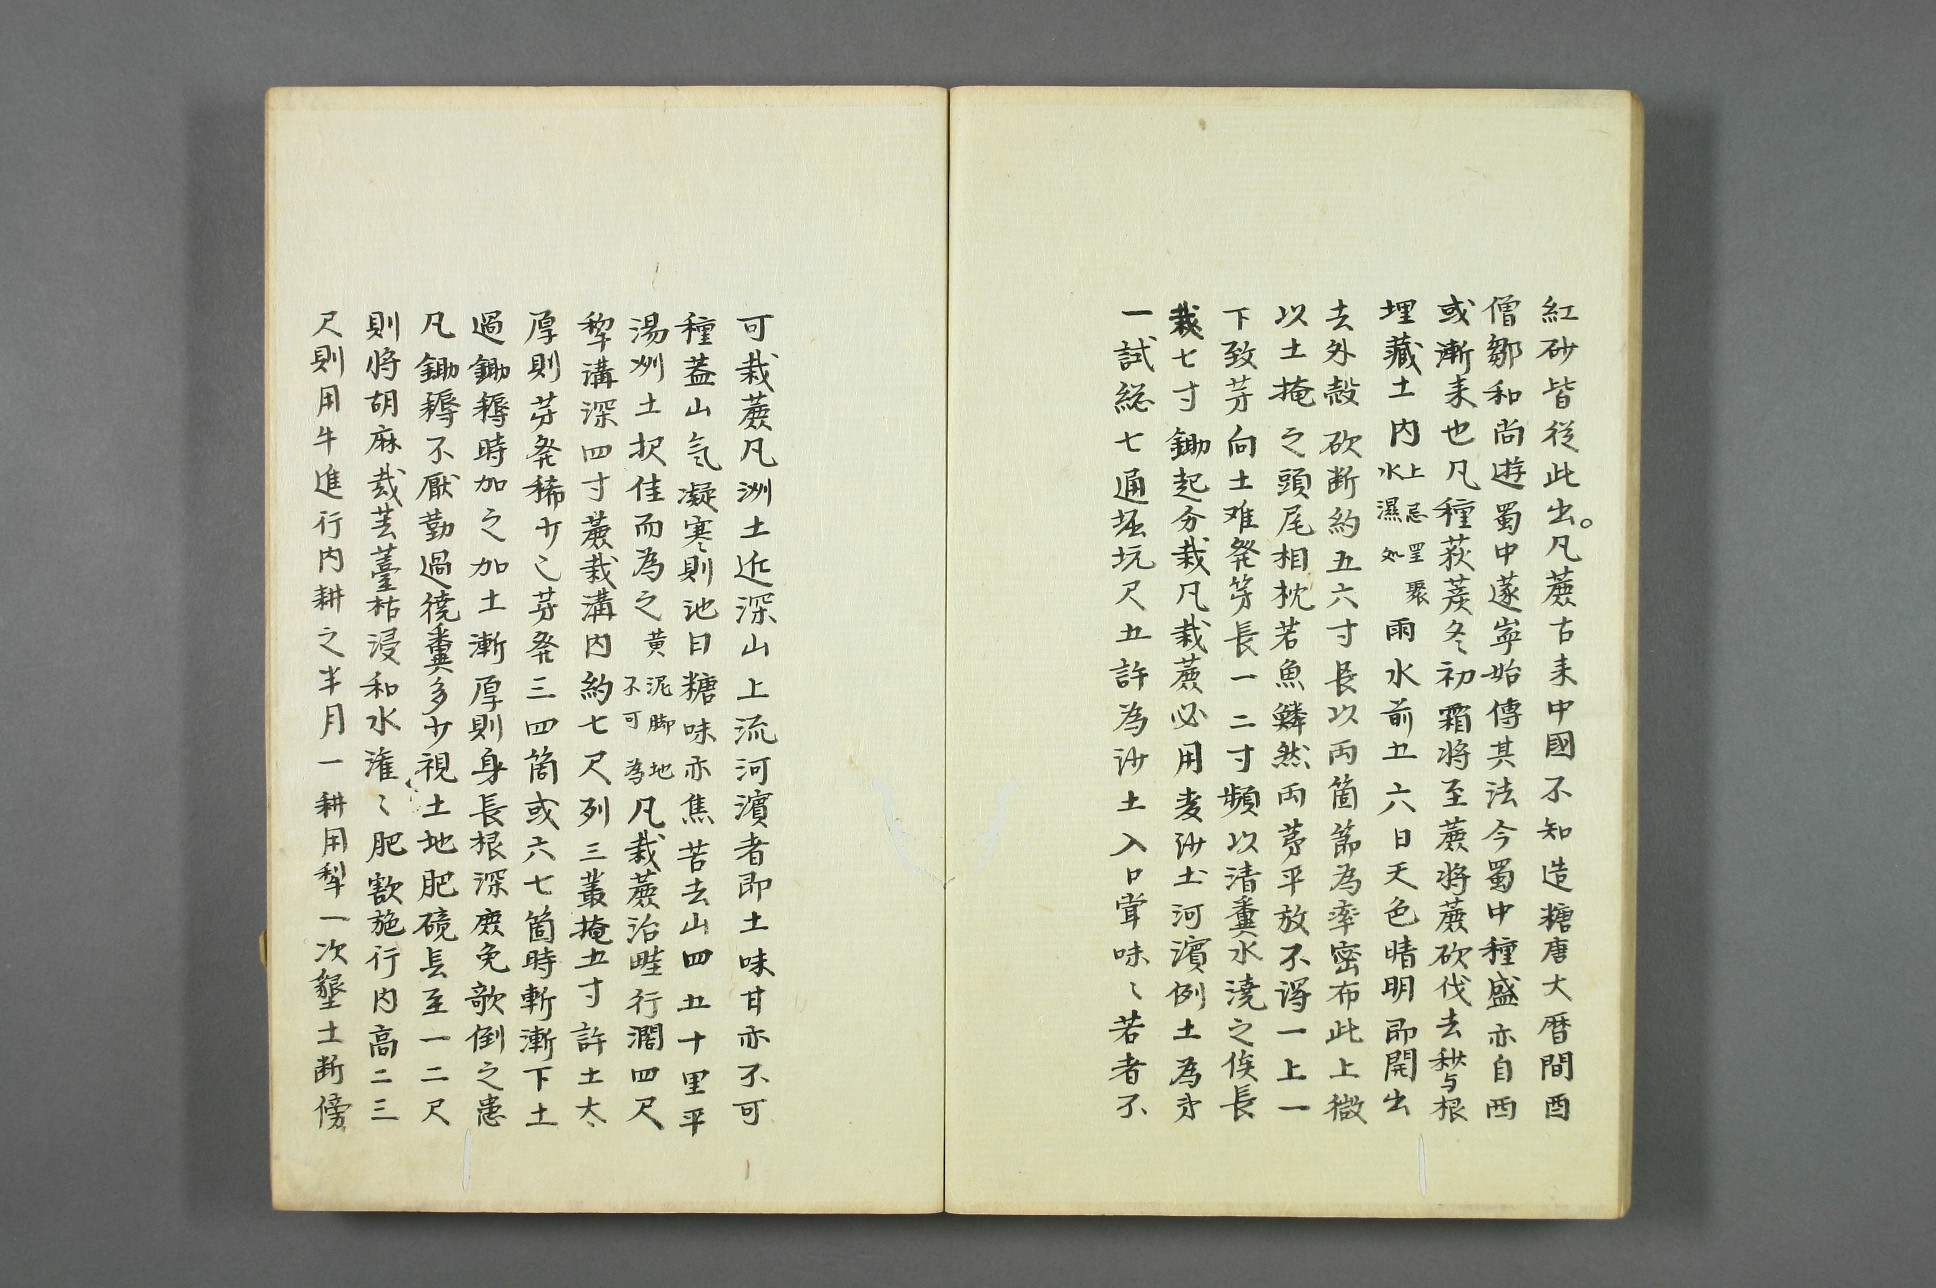 紅砂皆從此出。凡蔗古来中國不知造糖唐大曆間酉
僧鄒和尚遊蜀中遂寧始傳其法今蜀中種盛亦自西
或漸来也凡種荻蔗冬初霜將至蔗將蔗砍伐去杪与根
埋藏土内上忌罣聚水濕如雨水前五六日天色晴明即開出
去外殻砍断約五六寸長以兩箇節為率密布此上微
以土掩之頭尾相枕若魚鱗然兩芽平放不得一上一
下致芽向土难發芽長一二寸頻以清糞水澆之俟長
栽七寸鋤起分栽凡栽蔗必用麦沙土河濵例土為才
一試総七通堀坑尺五許為沙土入口甞味〻若者不
可栽蔗凡洲土近深山上流河濵者即土味甘亦不可
種蓋山氣凝寒則池日糖味亦焦苦去山四五十里平
湯洲土択佳而為之黄泥脚地不可為凡栽蔗治畦行濶四尺
犂溝深四寸蔗栽溝内約七尺列三叢掩五寸許土太
厚則芽発稀少〻芽発三四箇或六七箇時斬漸下土
過鋤耨時加之加土漸厚則身長根深庶免欹倒之患
凡鋤耨不厭勤過澆糞多少視土地肥磽長至一二尺
則將胡麻或芸薹枯浸和水潅〻肥欲施行内高二三
尺則用牛進行内耕之半月一耕用犁一次墾土断傍